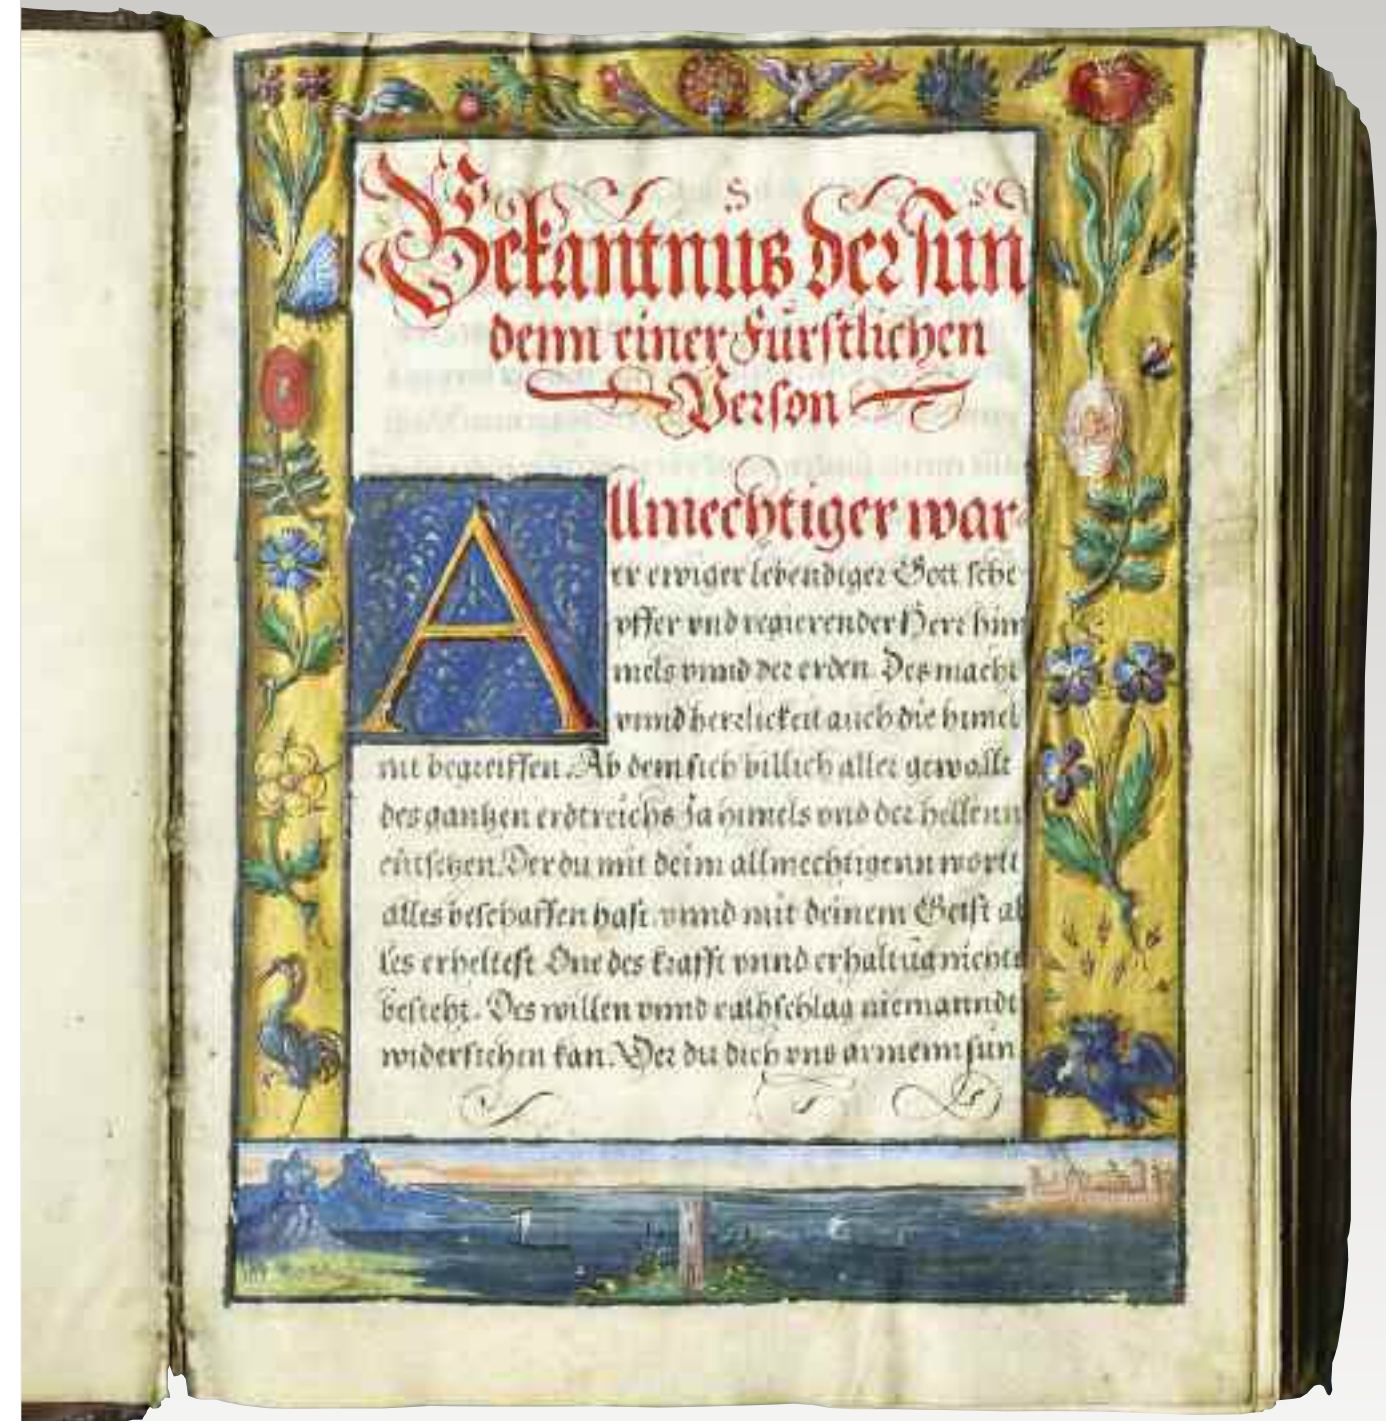 Bekantnus der sun
denn einer Fürstlichen
Person
Allmechtiger war
er ewiger lebendiger Gott sche
pffer vnd regierender Herr him
mels vnnd der erden. Des macht
vnnd herrlickeit auch die himel
nit begreiffen. Ab dem sich billich aller gewallt
des gantzen erdtreichs Ja himels vnd der hellenn
entsetzen. Der du mit deim allmechtigenn wortt
alles beschaffen hast. vnnd mit deinem Geist al
les erheltest One des krafft vnnd erhaltūg nichts
besteht. Des willen vnnd rathschlag niemanndt
widerstehen kan. Der du dich vns armenn sün